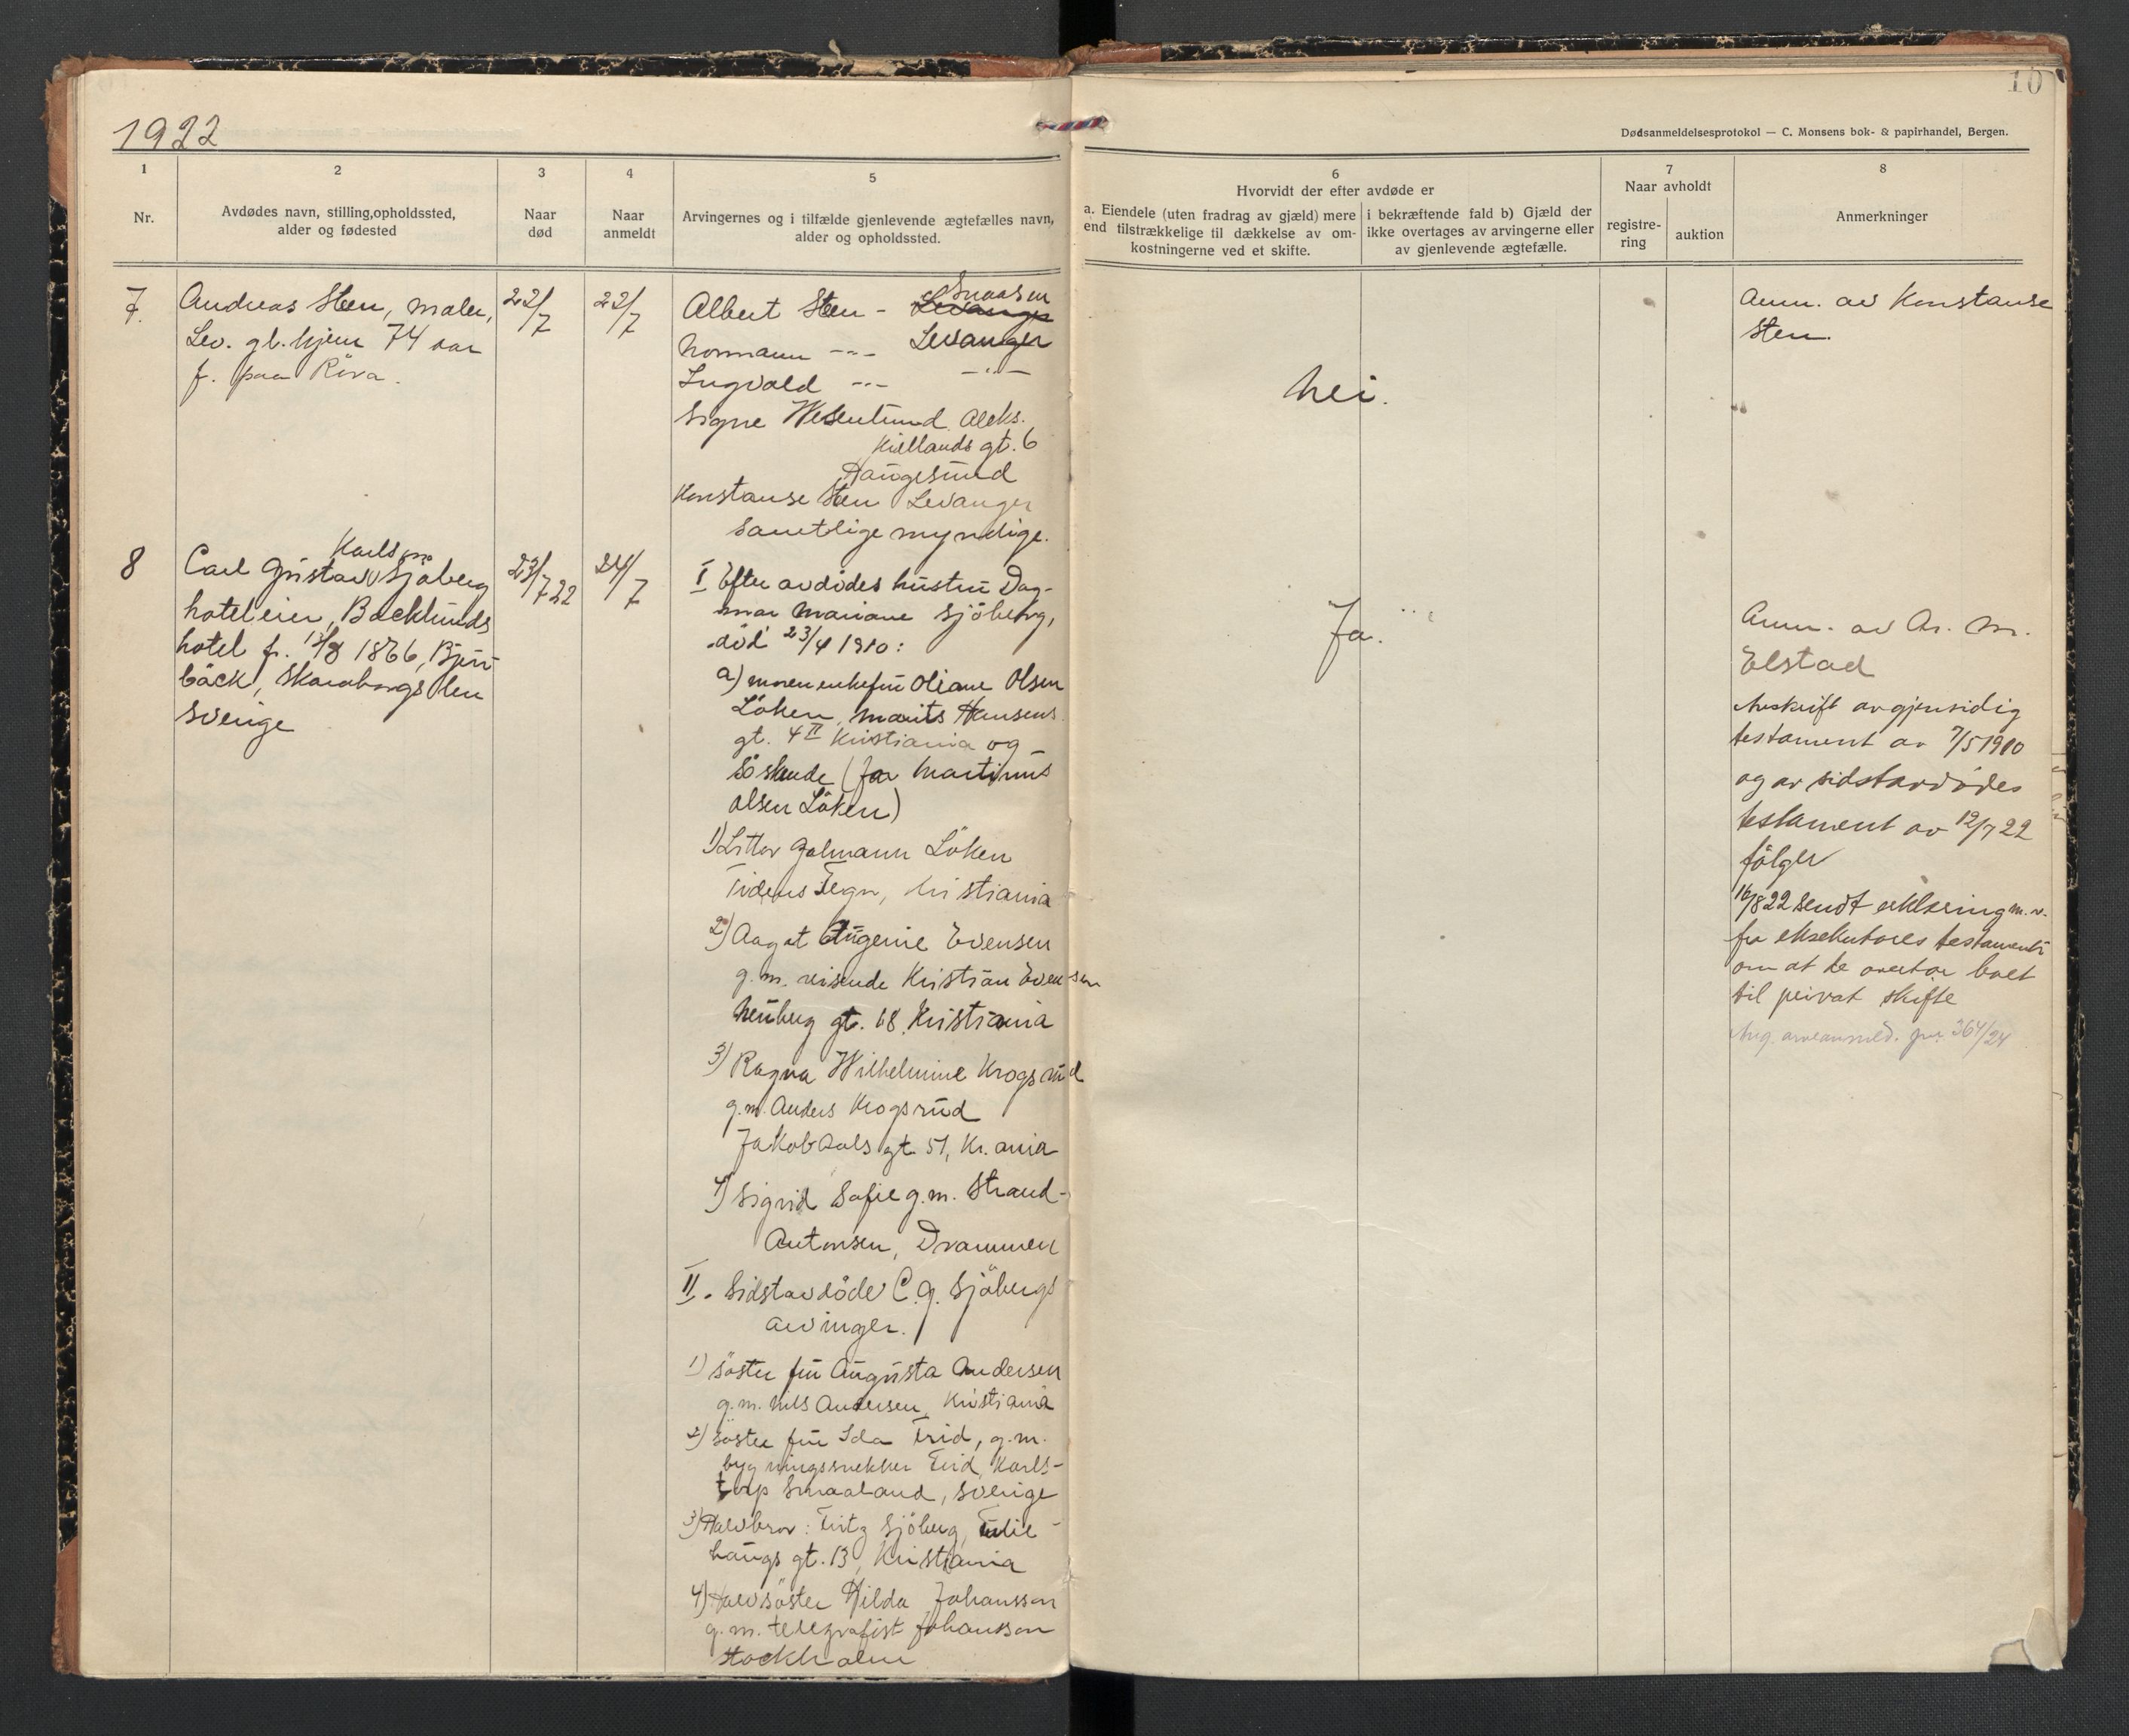 1922
10
Dødsanmeldelsesprotokol — C. Monsens bok- & papirhandel, Bergen.
1
Nr.
2
Avdødes navn, stilling,opholdssted,
alder og fødested
3
Naar
død
4
Naar
anmeldt
5
Arvingernes og i tilfælde gjenlevende ægtefælles navn,
alder og opholdssted.
6
Hvorvidt der efter avdøde er
a. Eiendele (uten fradrag av gjæld) mere
end tilstrækkelige til dækkelse av om-
kostningerne ved et skifte.
i bekræftende fald b) Gjæld der
ikke overtages av arvingerne eller
av gjenlevende ægtefælle.
7
Naar avholdt
registre-
ring
auktion
8
Anmerkninger
7.
Andreas Sten, maler,
Lev. gl. hjem 74 aar
f. paa Röra.
22/7
22/7
Snaasen
Albert Sten - Levanger
Normann -"- Levanger
Ingvald -"- -"-
Signe Wesenlund Aleks.
Kiellands gt. 6
Haugesund
Konstanse Sten Levanger
samtlige myndige.
Nei.
Anm. av Konstanse
Sten.
8
Karlson
Carl Gustav Sjöberg
hoteleier, Backlunds
hotel f. 1866, Björ
bäck, Skaraborgs len
Sverige
23/7 22
24/7
I Efter avdödes hustru Dag-
mar Mariane Sjöberg,
död 23/4 1910:
a) moren enkefru Oliane Olsen
Löken, Marits Hansens
gt. 4 II Kristiania og
söskende (far Martinus
Olsen Löken)
1) Galmann Löken
Tidens Tegn, Kristiania
2) Aagot Eugenie Evensen
g.m. reisende Kristian Evensen
Neuberg gt. 18 Kristiania
3) Ragna Wilhelmine Krogsrud
g.m. Anders Krogsrud
Jakob Aals gt 51, Kr.ania
4) Sigrid Sofie g.m. Strand-
Antonsen, Drammen
II. Sidstavdöde C. G. Sjöbergs
arvinger.
1) söster fru Augusta Andersen
g.m. Nils Andersen, Kristiania
2) söster fru Ida Frid, g.m.
bygningssnekker Frid, Karls-
torp Smaaland, Sverige
3) Halvbror: Fritz Sjöberg,
haugs gt. 13, Kristiania
4) Halvsöster Hilda Johansson
g.m. telegrafist Johansson
Stockholm
Ja.
Anm. av Ar. M.
Elstad
Avskrift av gjensidig
testament av 7/5 1910
og av sidstavdödes
testament av 12/7 22
fölger
16/8 22 sendt erklæring m.v.
fra eksekutores testamenti
om at de overtar boet
til privat skifte
Ang. arveanmeld. jnr 364/24